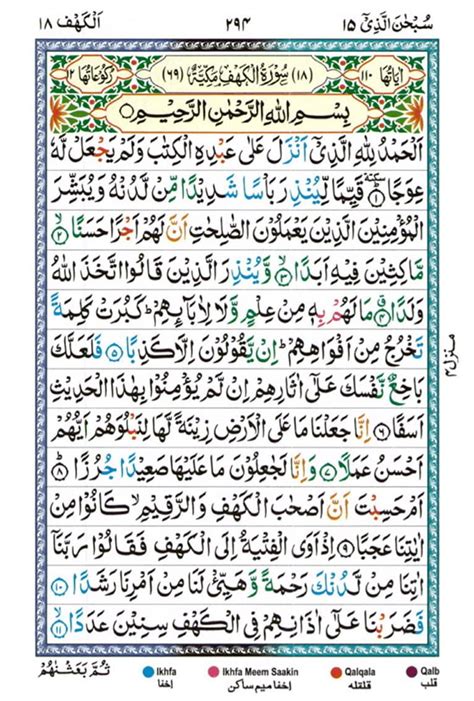 سُبْحٰنَ الَّذِیْۤ ١٥ ٢٩٤ اَلْكَهْف ١٨
اٰیَاتُهَا ١١٠ (١٨) سُوْرَةُ الْكَهْفِ مَكِّیَّةٌ (٦٩) رُكُوْعَاتُهَا ١٢
بِسْمِ اللّٰهِ الرَّحْمٰنِ الرَّحِیْمِ
اَلْحَمْدُ لِلّٰهِ الَّذِیْۤ اَنْزَلَ عَلٰی عَبْدِهِ الْكِتٰبَ وَلَمْ یَجْعَلْ لَّهٗ
عِوَجًا ١ سكتة قَیِّمًا لِّیُنْذِرَ بَاْسًا شَدِیْدًا مِّنْ لَّدُنْهُ وَیُبَشِّرَ
الْمُؤْمِنِیْنَ الَّذِیْنَ یَعْمَلُوْنَ الصّٰلِحٰتِ اَنَّ لَهُمْ اَجْرًا حَسَنًا ٢
مَّاكِثِیْنَ فِیْهِ اَبَدًا ٣ وَّیُنْذِرَ الَّذِیْنَ قَالُوا اتَّخَذَ اللّٰهُ
وَلَدًا ٤ مَا لَهُمْ بِهٖ مِنْ عِلْمٍ وَّلَا لِاٰبَآىِٕهِمْ ؕ كَبُرَتْ كَلِمَةً
تَخْرُجُ مِنْ اَفْوَاهِهِمْ ؕ اِنْ یَّقُوْلُوْنَ اِلَّا كَذِبًا ٥ فَلَعَلَّكَ
بَاخِعٌ نَّفْسَكَ عَلٰۤی اٰثَارِهِمْ اِنْ لَّمْ یُؤْمِنُوْا بِهٰذَا الْحَدِیْثِ
اَسَفًا ٦ اِنَّا جَعَلْنَا مَا عَلَی الْاَرْضِ زِیْنَةً لَّهَا لِنَبْلُوَهُمْ اَیُّهُمْ
اَحْسَنُ عَمَلًا ٧ وَاِنَّا لَجٰعِلُوْنَ مَا عَلَیْهَا صَعِیْدًا جُرُزًا ٨
اَمْ حَسِبْتَ اَنَّ اَصْحٰبَ الْكَهْفِ وَالرَّقِیْمِ ۙ كَانُوْا مِنْ
اٰیٰتِنَا عَجَبًا ٩ اِذْ اَوَی الْفِتْیَةُ اِلَی الْكَهْفِ فَقَالُوْا رَبَّنَاۤ
اٰتِنَا مِنْ لَّدُنْكَ رَحْمَةً وَّهَیِّئْ لَنَا مِنْ اَمْرِنَا رَشَدًا ١٠
فَضَرَبْنَا عَلٰۤی اٰذَانِهِمْ فِی الْكَهْفِ سِنِیْنَ عَدَدًا ١١
منزل ٤
ثُمَّ بَعَثْنٰهُمْ
Ikhfa Ikhfa Meem Saakin Qalqala Qalb
اخفا اخفا میم ساكن قلقله قلب